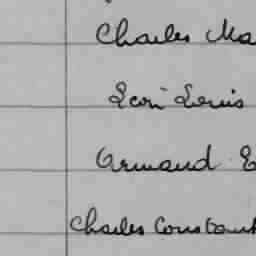 Charles Ma
Léon Louis
Armand E
Charles Constant